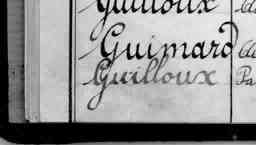 Guilloux
Guimard
Guilloux Pa